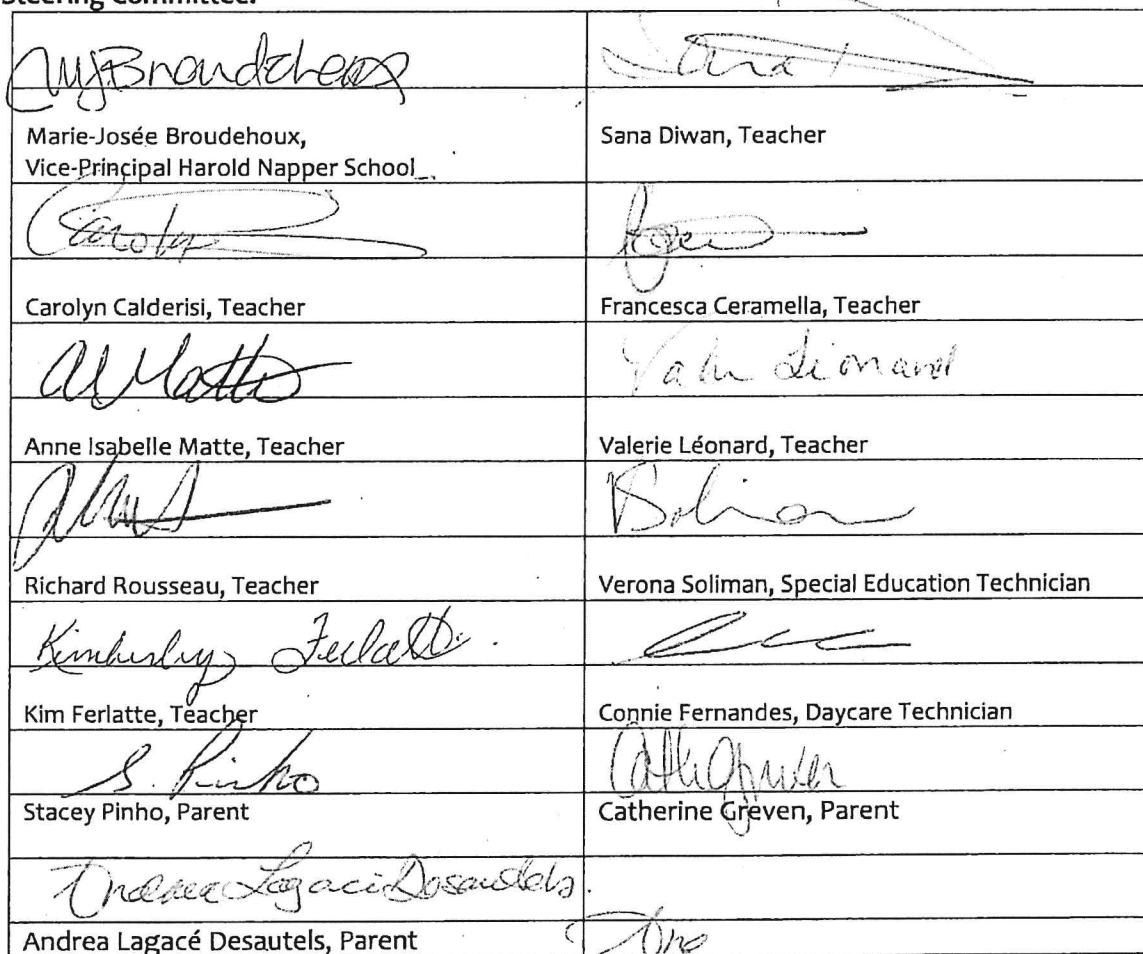 Steering Committee:
MJBroudehoux
Sana
Marie-Josée Broudehoux,
Vice-Principal Harold Napper School
Sana Diwan, Teacher
Carolyn
Carolyn Calderisi, Teacher
Francesca Ceramella, Teacher
AI Matte
Valerie Léonard
Anne Isabelle Matte, Teacher
Valerie Léonard, Teacher
Soliman
Richard Rousseau, Teacher
Verona Soliman, Special Education Technician
Kimberly Ferlatte
Kim Ferlatte, Teacher
Connie Fernandes, Daycare Technician
S. Pinho
Stacey Pinho, Parent
Catherine Greven, Parent
Andrea Lagacé Desautels
Andrea Lagacé Desautels, Parent